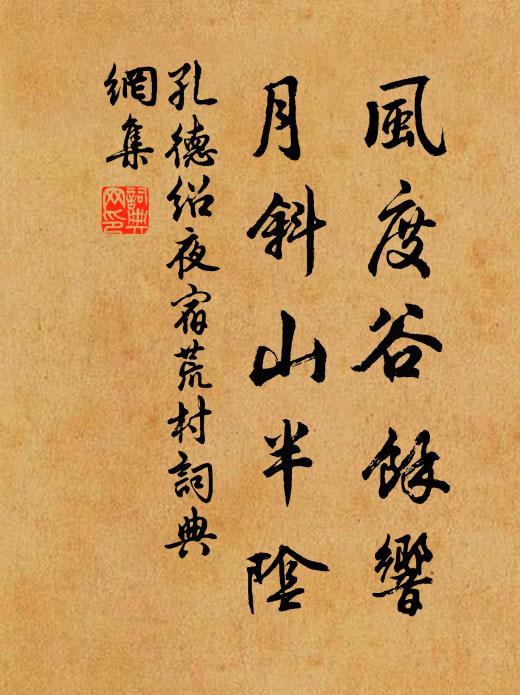 風度谷餘響
月斜山半陰
孔德绍夜宿荒村詞典
網集
詞典
网印